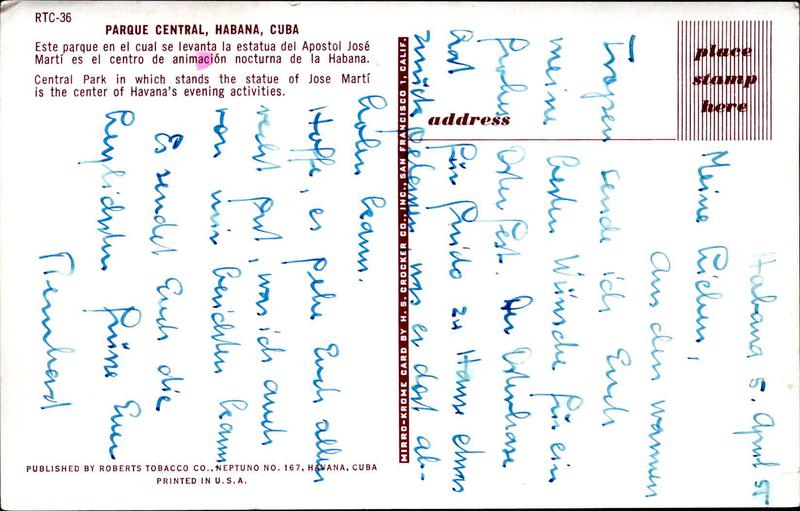 RTC-36
PARQUE CENTRAL, HABANA, CUBA
Este parque en el cual se levanta la estatua del Apostol José
Martí es el centro de animación nocturna de la Habana.
Central Park in which stands the statue of Jose Martí
is the center of Havana's evening activities.
place
stamp
here
address
MIRRO-KROME CARD BY H. S. CROCKER CO., INC., SAN FRANCISCO 1, CALIF.
Habana 5. April 55
Meine Lieben,
Aus den warmen
Tropen sende ich Euch
meine besten Wünsche für ein
frohes Osterfest. Der Osterhase
hat für Guido zu Hause etwas
zurückgelassen, was er dort ab-
holen kann.
Hoffe, es geht Euch allen
recht gut, was ich auch
von mir berichten kann
Es sendet Euch die
herzlichsten Grüsse Euer
Bernhard
PUBLISHED BY ROBERTS TOBACCO CO., NEPTUNO NO. 167, HAVANA, CUBA
PRINTED IN U.S.A.